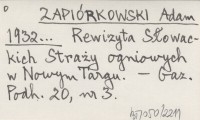 ZAPIÓRKOWSKI Adam
1932... Rewizyta Słowac-
kich Straży ogniowych
w Nowym Targu. — Gaz.
Podh. 20, nr 3.